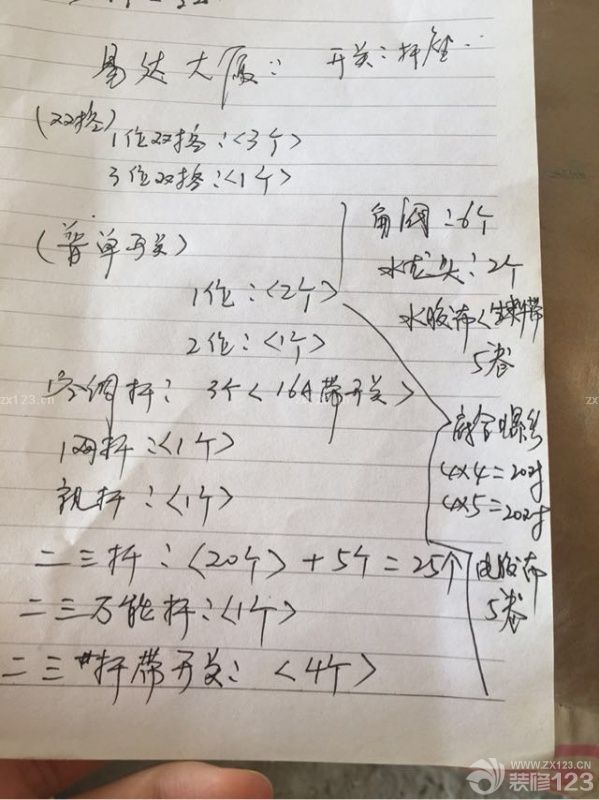 易达大厦： 开关：插座：
(双控)
1位双控：<3个>
3位双控：<1个>
(普单开关)
1位：<2个>
2位：<1个>
空调插：3个<16A带开关>
1网插：<1个>
视插：<1个>
二三插：<20个>+5个=25个
二三万能插：<1个>
二三插带开关：<4个>
角阀：6个
水龙头：2个
水胶布<生料带
5卷
4×4=20对
4×5=20对
电胶布
5卷
zx123.cn
WWW.ZX123.CN
装修123